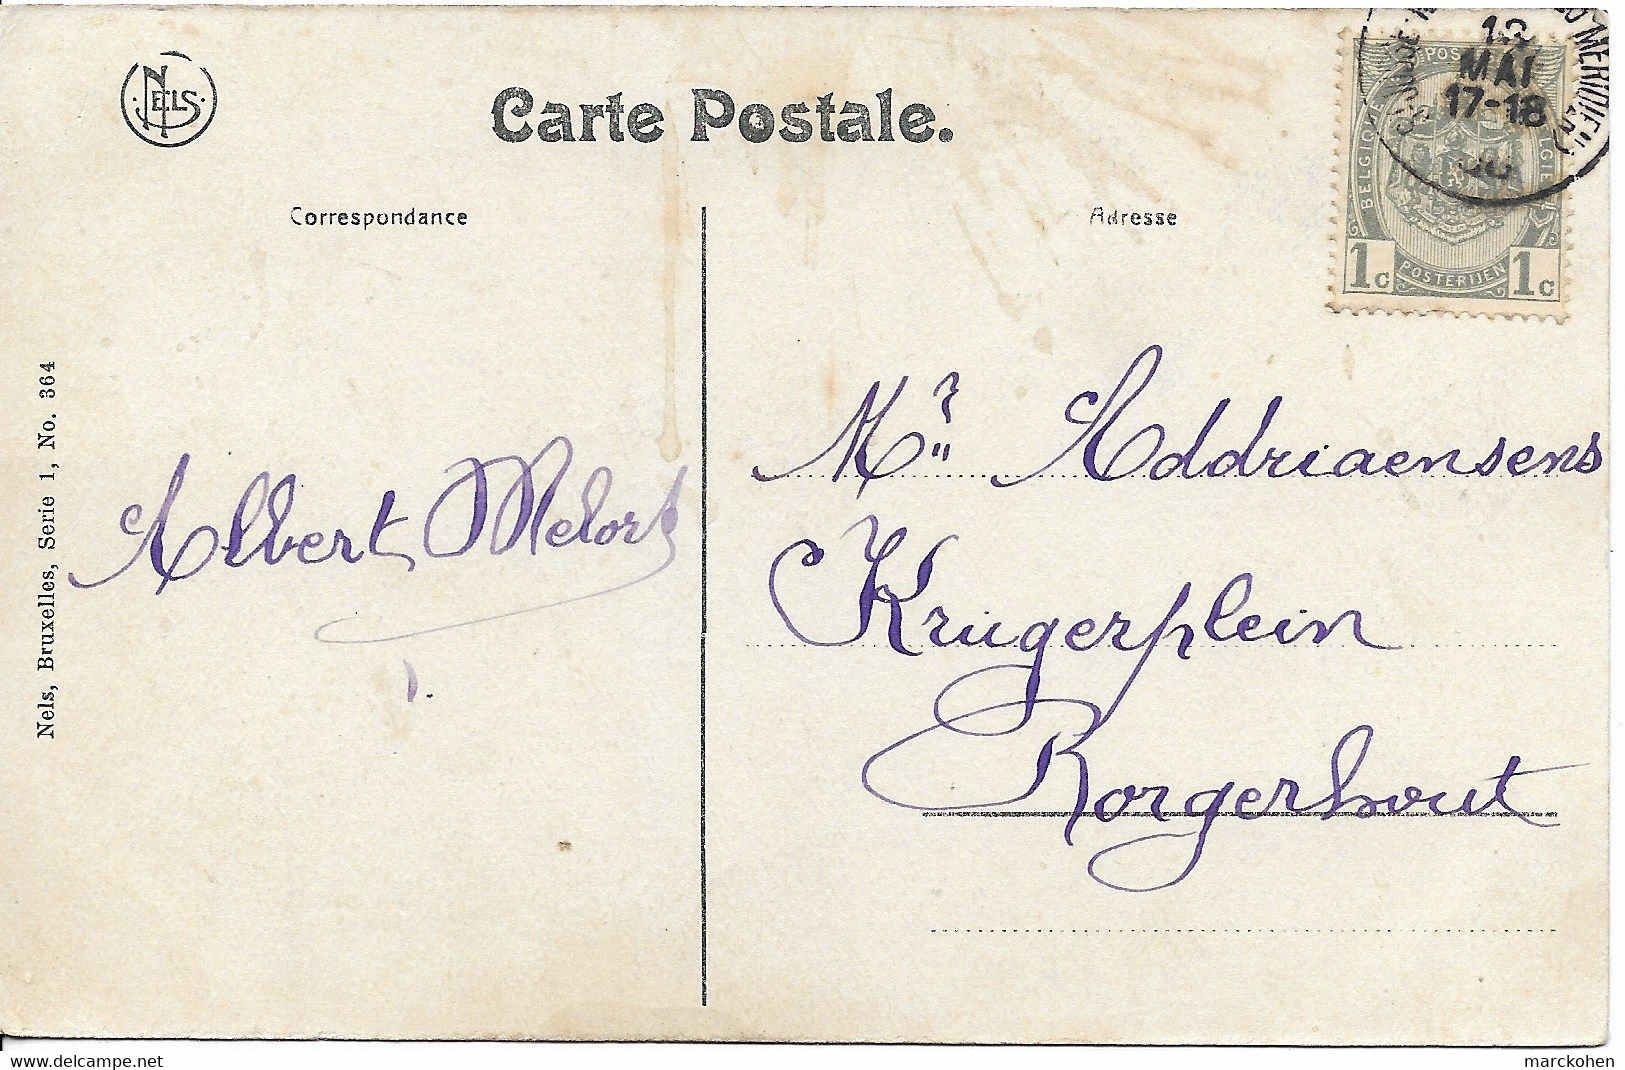 NELS
Carte Postale.
Correspondance
Adresse
MAI
17-18
BELGIQUE
POSTERIJEN
1c 1c
Nels, Bruxelles, Serie 1, No. 364
Albert
Mr Addriaensens
Krugerplein
Borgerhout
delcampe.net
marckohen